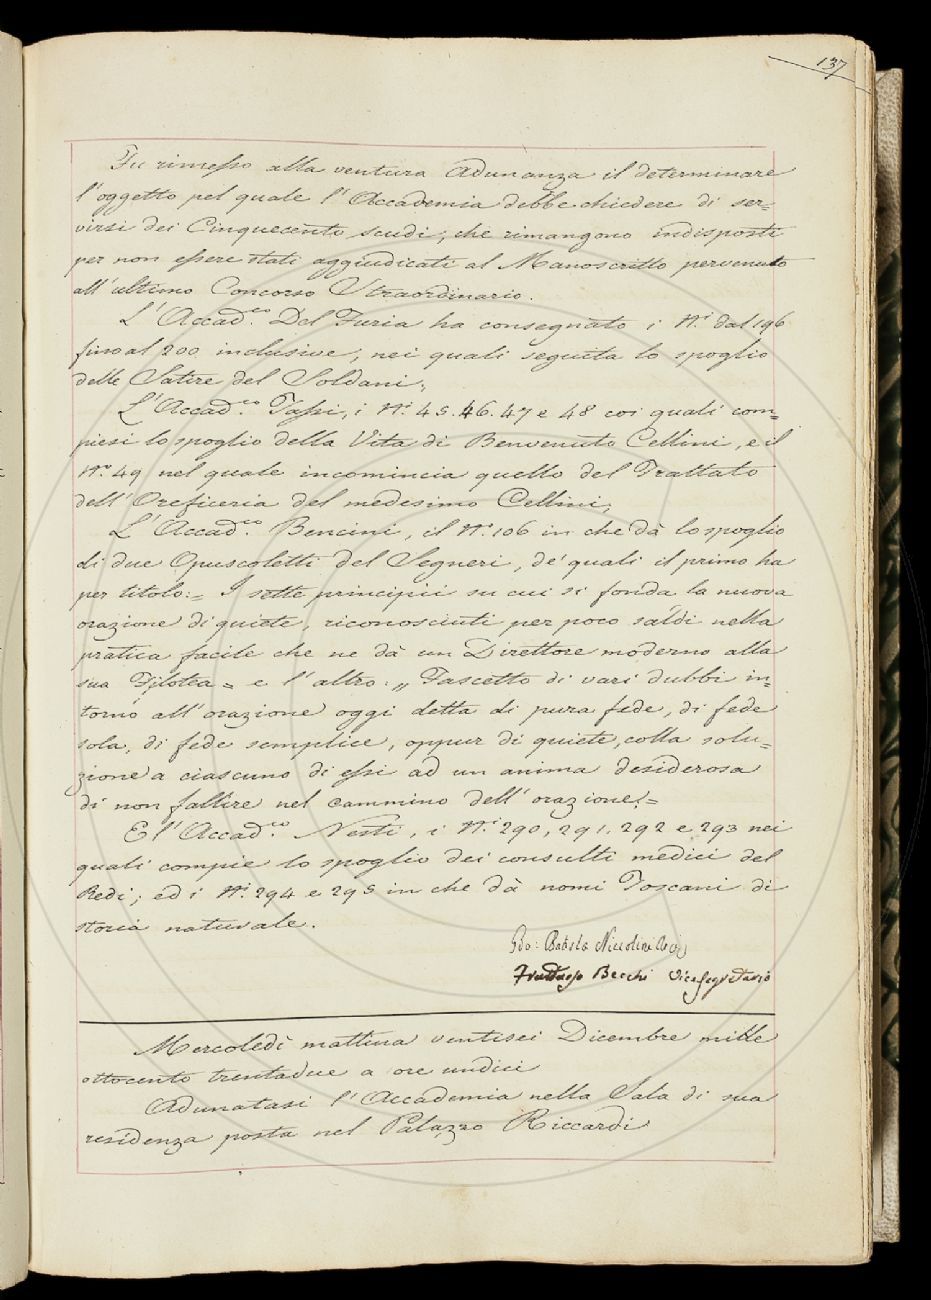 137
Fu rimesso alla ventura Adunanza il determinare
l'oggetto pel quale l'Accademia debbe chiedere di ser=
virsi dei Cinquecento scudi, che rimangono indisposti
per non essere stati aggiudicati al Manoscritto pervenuto
all'ultimo Concorso Straordinario.
L'Accad.co Del Furia ha consegnato i N.i dal 196
fino al 200 inclusive, nei quali seguita lo spoglio
delle Satire del Soldani;
L'Accad.co Tassi, i N.i 45. 46. 47 e 48 coi quali com=
piesi lo spoglio della Vita di Benvenuto Cellini, e il
N.o 49 nel quale incomincia quello del Trattato
dell'Oreficeria del medesimo Cellini;
L'Accad.co Bencini, il N.o 106 in che dà lo spoglio
di due Opuscoletti del Segneri, de' quali il primo ha
per titolo:= I sette principii su cui si fonda la nuova
orazione di quiete, riconosciuti per poco saldi nella
pratica facile che ne dà un Direttore moderno alla
sua Filotea = e l'altro: „ Fascetto di vari dubbi in=
torno all'orazione oggi detta di pura fede, di fede
sola, di fede semplice, oppur di quiete, colla solu=
zione a ciascuno di essi ad un anima desiderosa
di non fallire nel cammino dell'orazione.=
E l'Accad.co Nesti, i N.i 290, 291. 292 e 293 nei
quali compie lo spoglio dei consulti medici del
Redi; ed i N.i 294 e 295 in che dà nomi Toscani di
storia naturale.
Gio: Batista Niccolini
Fruttuoso Becchi Vicesegretario
Mercoledì mattina ventisei Dicembre mille
ottocento trentadue a ore undici
Adunatasi l'Accademia nella Sala di sua
residenza posta nel Palazzo Riccardi